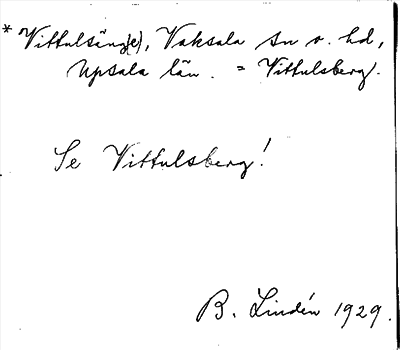 * Vittulsäng(e), Vaksala sn o. hd,
Upsala län. = Vittulsberg.
Se Vittulsberg!
B. Lindén 1929.